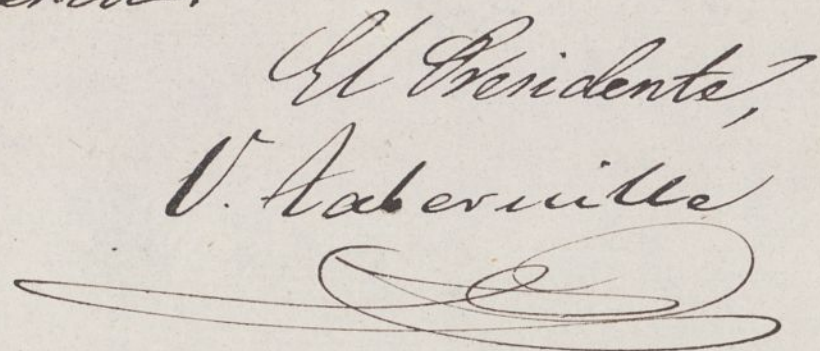 El Presidente,
V. Tabernilla